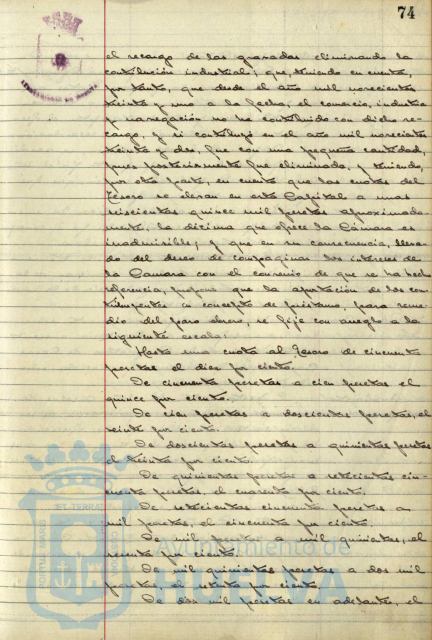 74
el recargo de las gravadas eliminando la
contribución industrial; que, teniendo en cuenta,
por tanto, que desde el año mil novecientos
treinta y uno a la fecha, el comercio, industria
y navegación no ha contribuido con dicho re-
cargo, y si contribuyó en el año mil novecientos
treinta y dos, fue con una pequeña cantidad,
pues posteriormente fue eliminada, y teniendo,
por otra parte, en cuenta que las cuotas del
Tesoro se elevan en esta Capital a unas
seiscientas quince mil pesetas aproximada-
mente, la décima que ofrece la Cámara es
inadmisible; y que en su consecuencia, lleva-
do del deseo de compaginar los intereses de
la Camara con el convenio de que se ha hecho
referencia, propone que la aportación de los con-
tribuyentes en concepto de préstamo, para reme-
dio del paro obrero, se fije con arreglo a la
siguiente escala:
Hasta una cuota al Tesoro de cincuenta
pesetas el diez por ciento.
De cincuenta pesetas a cien pesetas el
quince por ciento.
De cien pesetas a doscientas pesetas, el
veinte por ciento.
De doscientas pesetas a quinientas pesetas
el treinta por ciento.
De quinientas pesetas a setecientas cin-
cuenta pesetas, el cuarenta por ciento.
De setecientas cincuenta pesetas a
mil pesetas, el cincuenta por ciento.
De mil pesetas a mil quinientas, el
sesenta por ciento.
De mil quinientas pesetas a dos mil
pesetas, el setenta por ciento.
De dos mil pesetas en adelante, el
Ayuntamiento de
HUELVA